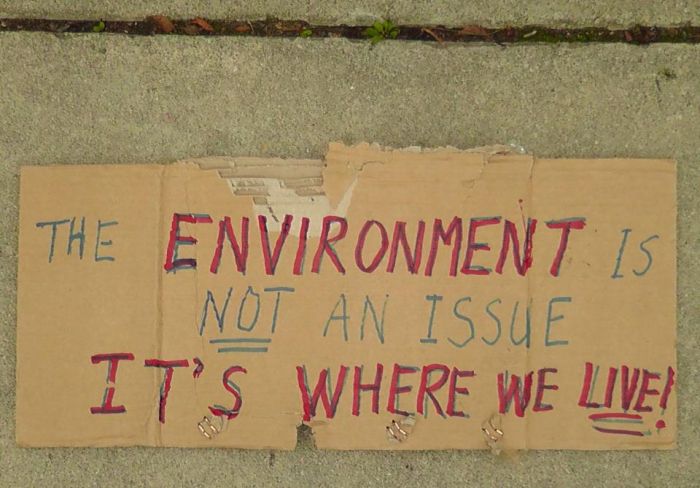 THE ENVIRONMENT IS
NOT AN ISSUE
IT'S WHERE WE LIVE!